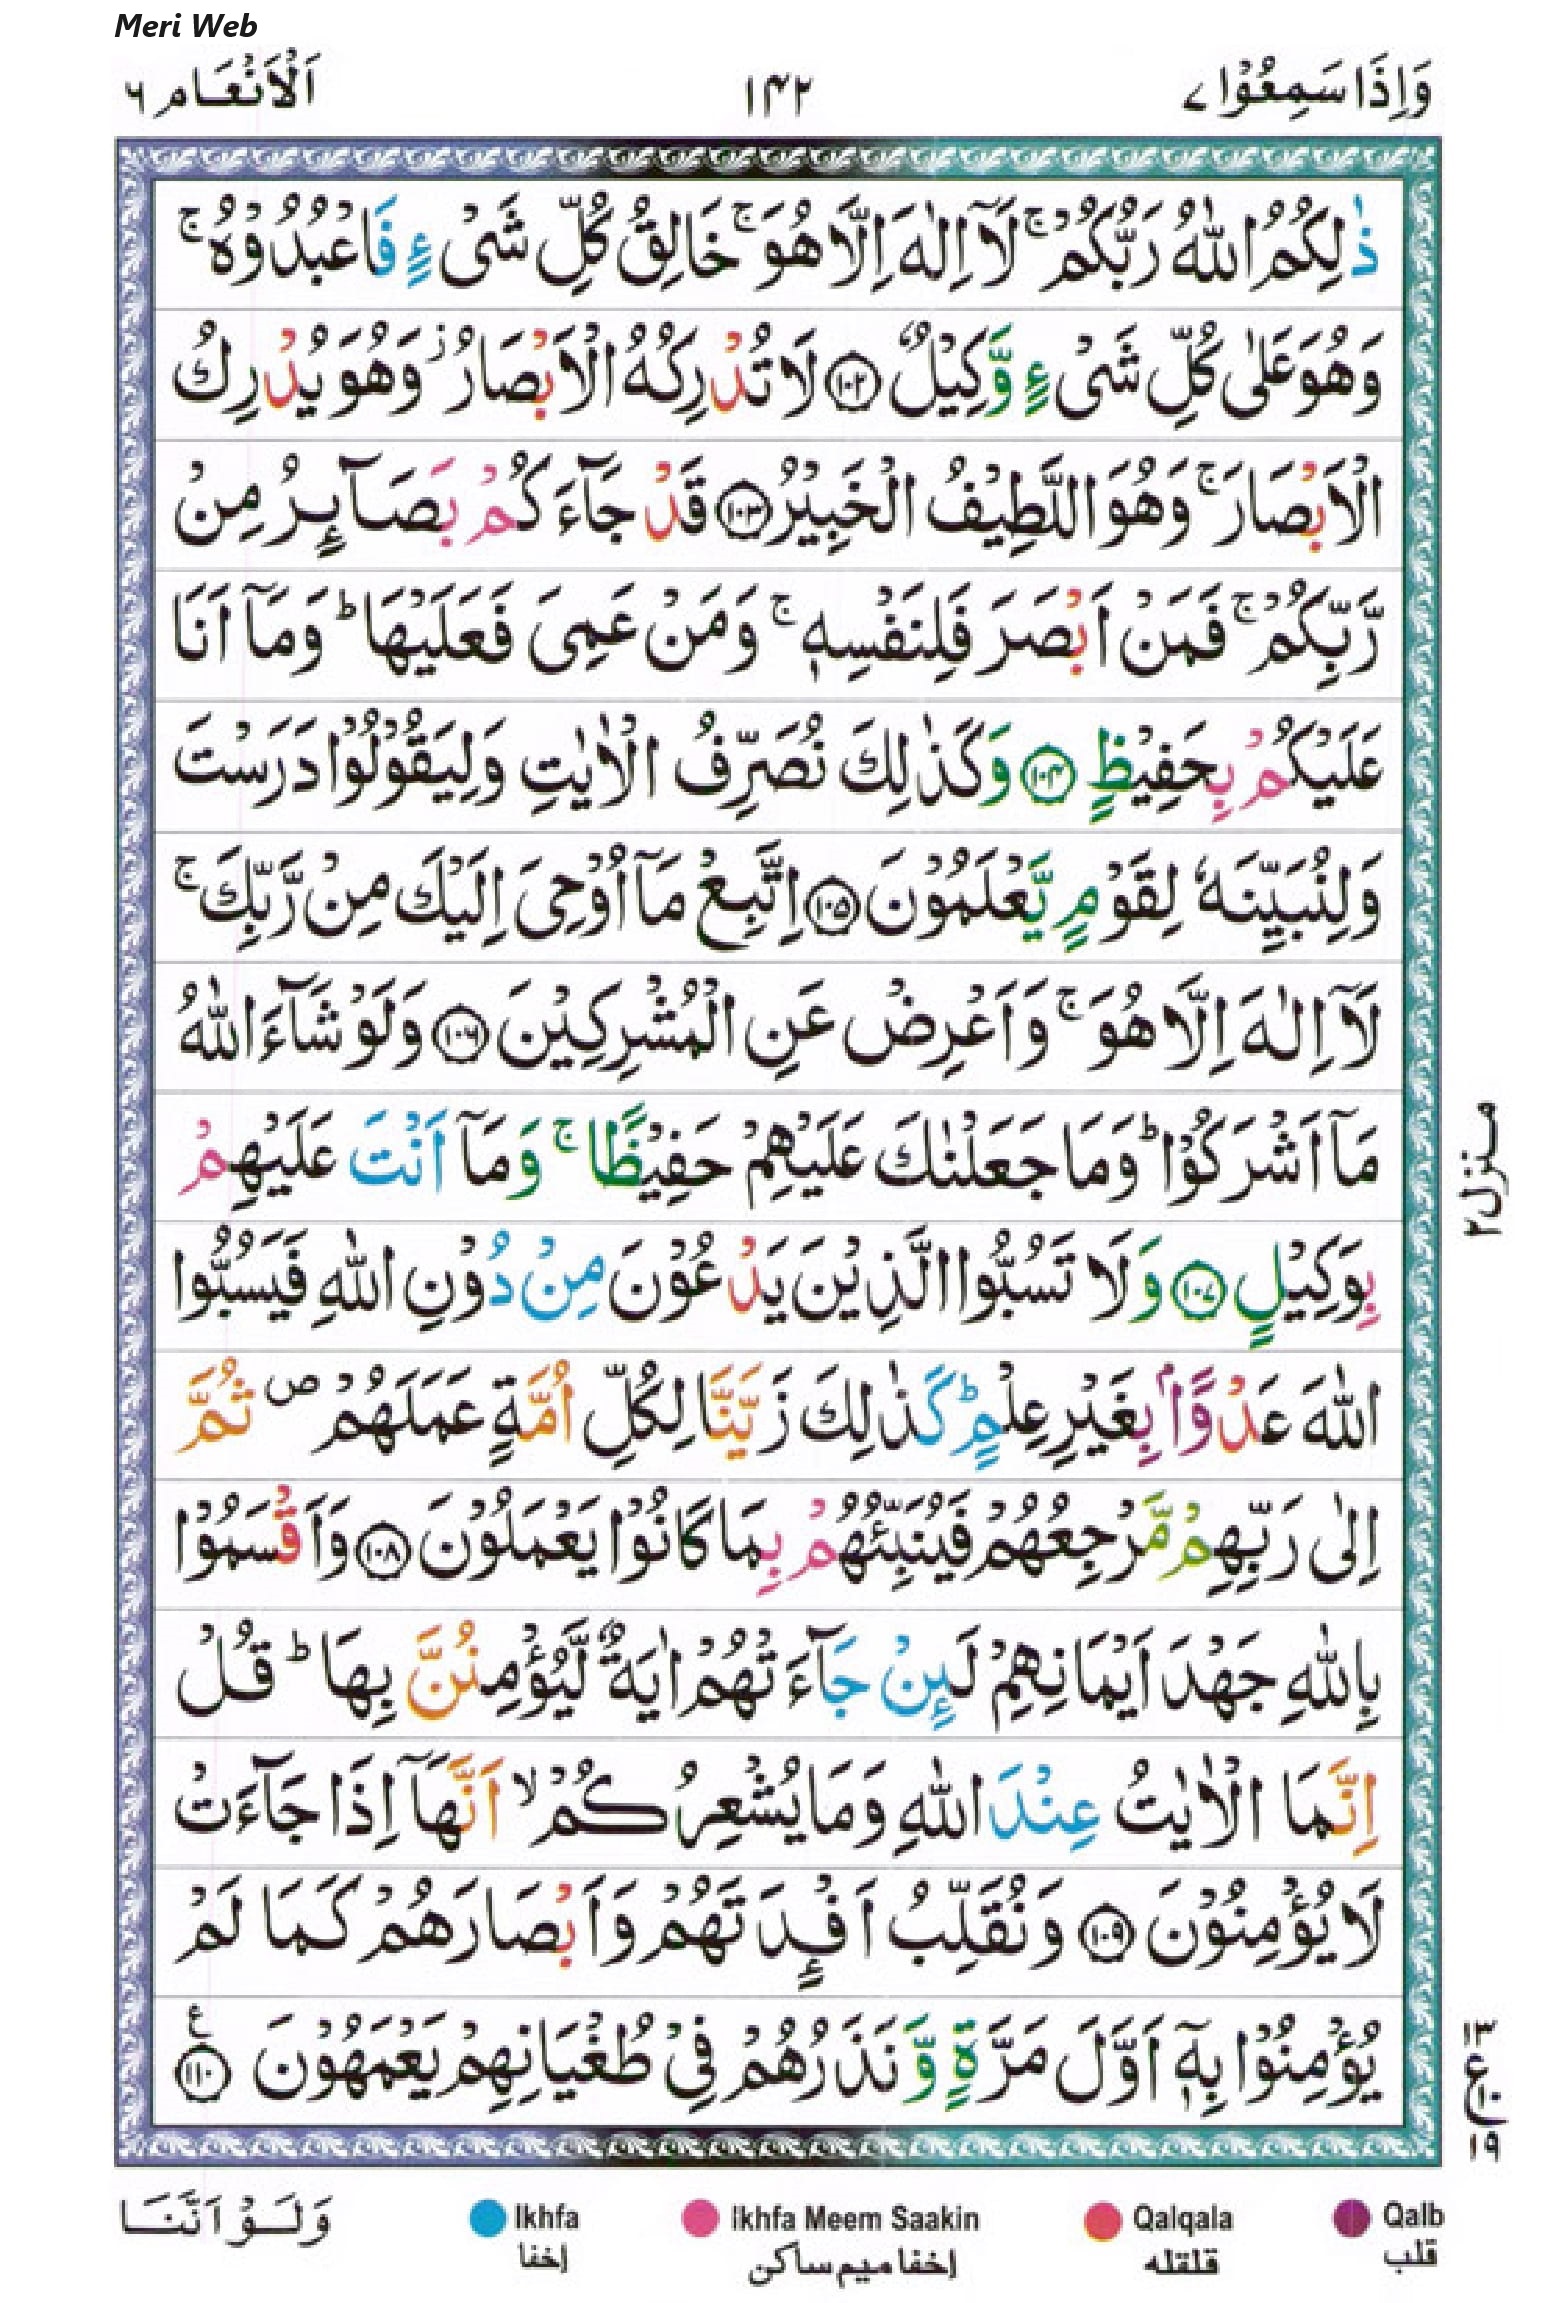 Meri Web
وَاِذَا سَمِعُوْا ۷
۱۴۲
اَلْاَنْعَام ۶
ذٰلِكُمُ اللّٰهُ رَبُّكُمْ ۚ لَاۤ اِلٰهَ اِلَّا هُوَ ۚ خَالِقُ كُلِّ شَیْءٍ فَاعْبُدُوْهُ ۚ
وَهُوَ عَلٰى كُلِّ شَیْءٍ وَّكِیْلٌ ﴿۱۰۲﴾ لَا تُدْرِكُهُ الْاَبْصَارُ ؗ وَهُوَ یُدْرِكُ
الْاَبْصَارَ ۚ وَهُوَ اللَّطِیْفُ الْخَبِیْرُ ﴿۱۰۳﴾ قَدْ جَآءَكُمْ بَصَآىِٕرُ مِنْ
رَّبِّكُمْ ۚ فَمَنْ اَبْصَرَ فَلِنَفْسِهٖ ۚ وَمَنْ عَمِیَ فَعَلَیْهَا ؕ وَمَاۤ اَنَا
عَلَیْكُمْ بِحَفِیْظٍ ﴿۱۰۴﴾ وَكَذٰلِكَ نُصَرِّفُ الْاٰیٰتِ وَلِیَقُوْلُوْا دَرَسْتَ
وَلِنُبَیِّنَهٗ لِقَوْمٍ یَّعْلَمُوْنَ ﴿۱۰۵﴾ اِتَّبِعْ مَاۤ اُوْحِیَ اِلَیْكَ مِنْ رَّبِّكَ ۚ
لَاۤ اِلٰهَ اِلَّا هُوَ ۚ وَاَعْرِضْ عَنِ الْمُشْرِكِیْنَ ﴿۱۰۶﴾ وَلَوْ شَآءَ اللّٰهُ
مَاۤ اَشْرَكُوْا ؕ وَمَا جَعَلْنٰكَ عَلَیْهِمْ حَفِیْظًا ۚ وَمَاۤ اَنْتَ عَلَیْهِمْ
بِوَكِیْلٍ ﴿۱۰۷﴾ وَلَا تَسُبُّوا الَّذِیْنَ یَدْعُوْنَ مِنْ دُوْنِ اللّٰهِ فَیَسُبُّوا
اللّٰهَ عَدْوًۢا بِغَیْرِ عِلْمٍ ؕ كَذٰلِكَ زَیَّنَّا لِكُلِّ اُمَّةٍ عَمَلَهُمْ ۪ ثُمَّ
اِلٰى رَبِّهِمْ مَّرْجِعُهُمْ فَیُنَبِّئُهُمْ بِمَا كَانُوْا یَعْمَلُوْنَ ﴿۱۰۸﴾ وَاَقْسَمُوْا
بِاللّٰهِ جَهْدَ اَیْمَانِهِمْ لَىِٕنْ جَآءَتْهُمْ اٰیَةٌ لَّیُؤْمِنُنَّ بِهَا ؕ قُلْ
اِنَّمَا الْاٰیٰتُ عِنْدَ اللّٰهِ وَمَا یُشْعِرُكُمْ ۙ اَنَّهَاۤ اِذَا جَآءَتْ
لَا یُؤْمِنُوْنَ ﴿۱۰۹﴾ وَنُقَلِّبُ اَفْـِٕدَتَهُمْ وَاَبْصَارَهُمْ كَمَا لَمْ
یُؤْمِنُوْا بِهٖۤ اَوَّلَ مَرَّةٍ وَّنَذَرُهُمْ فِیْ طُغْیَانِهِمْ یَعْمَهُوْنَ ﴿۱۱۰﴾ ع
منزل ۲
۱۳
ع
۱۰
۱۹
وَلَوْ اَنَّنَا
Ikhfa
اخفا
Ikhfa Meem Saakin
اخفا میم ساکن
Qalqala
قلقله
Qalb
قلب